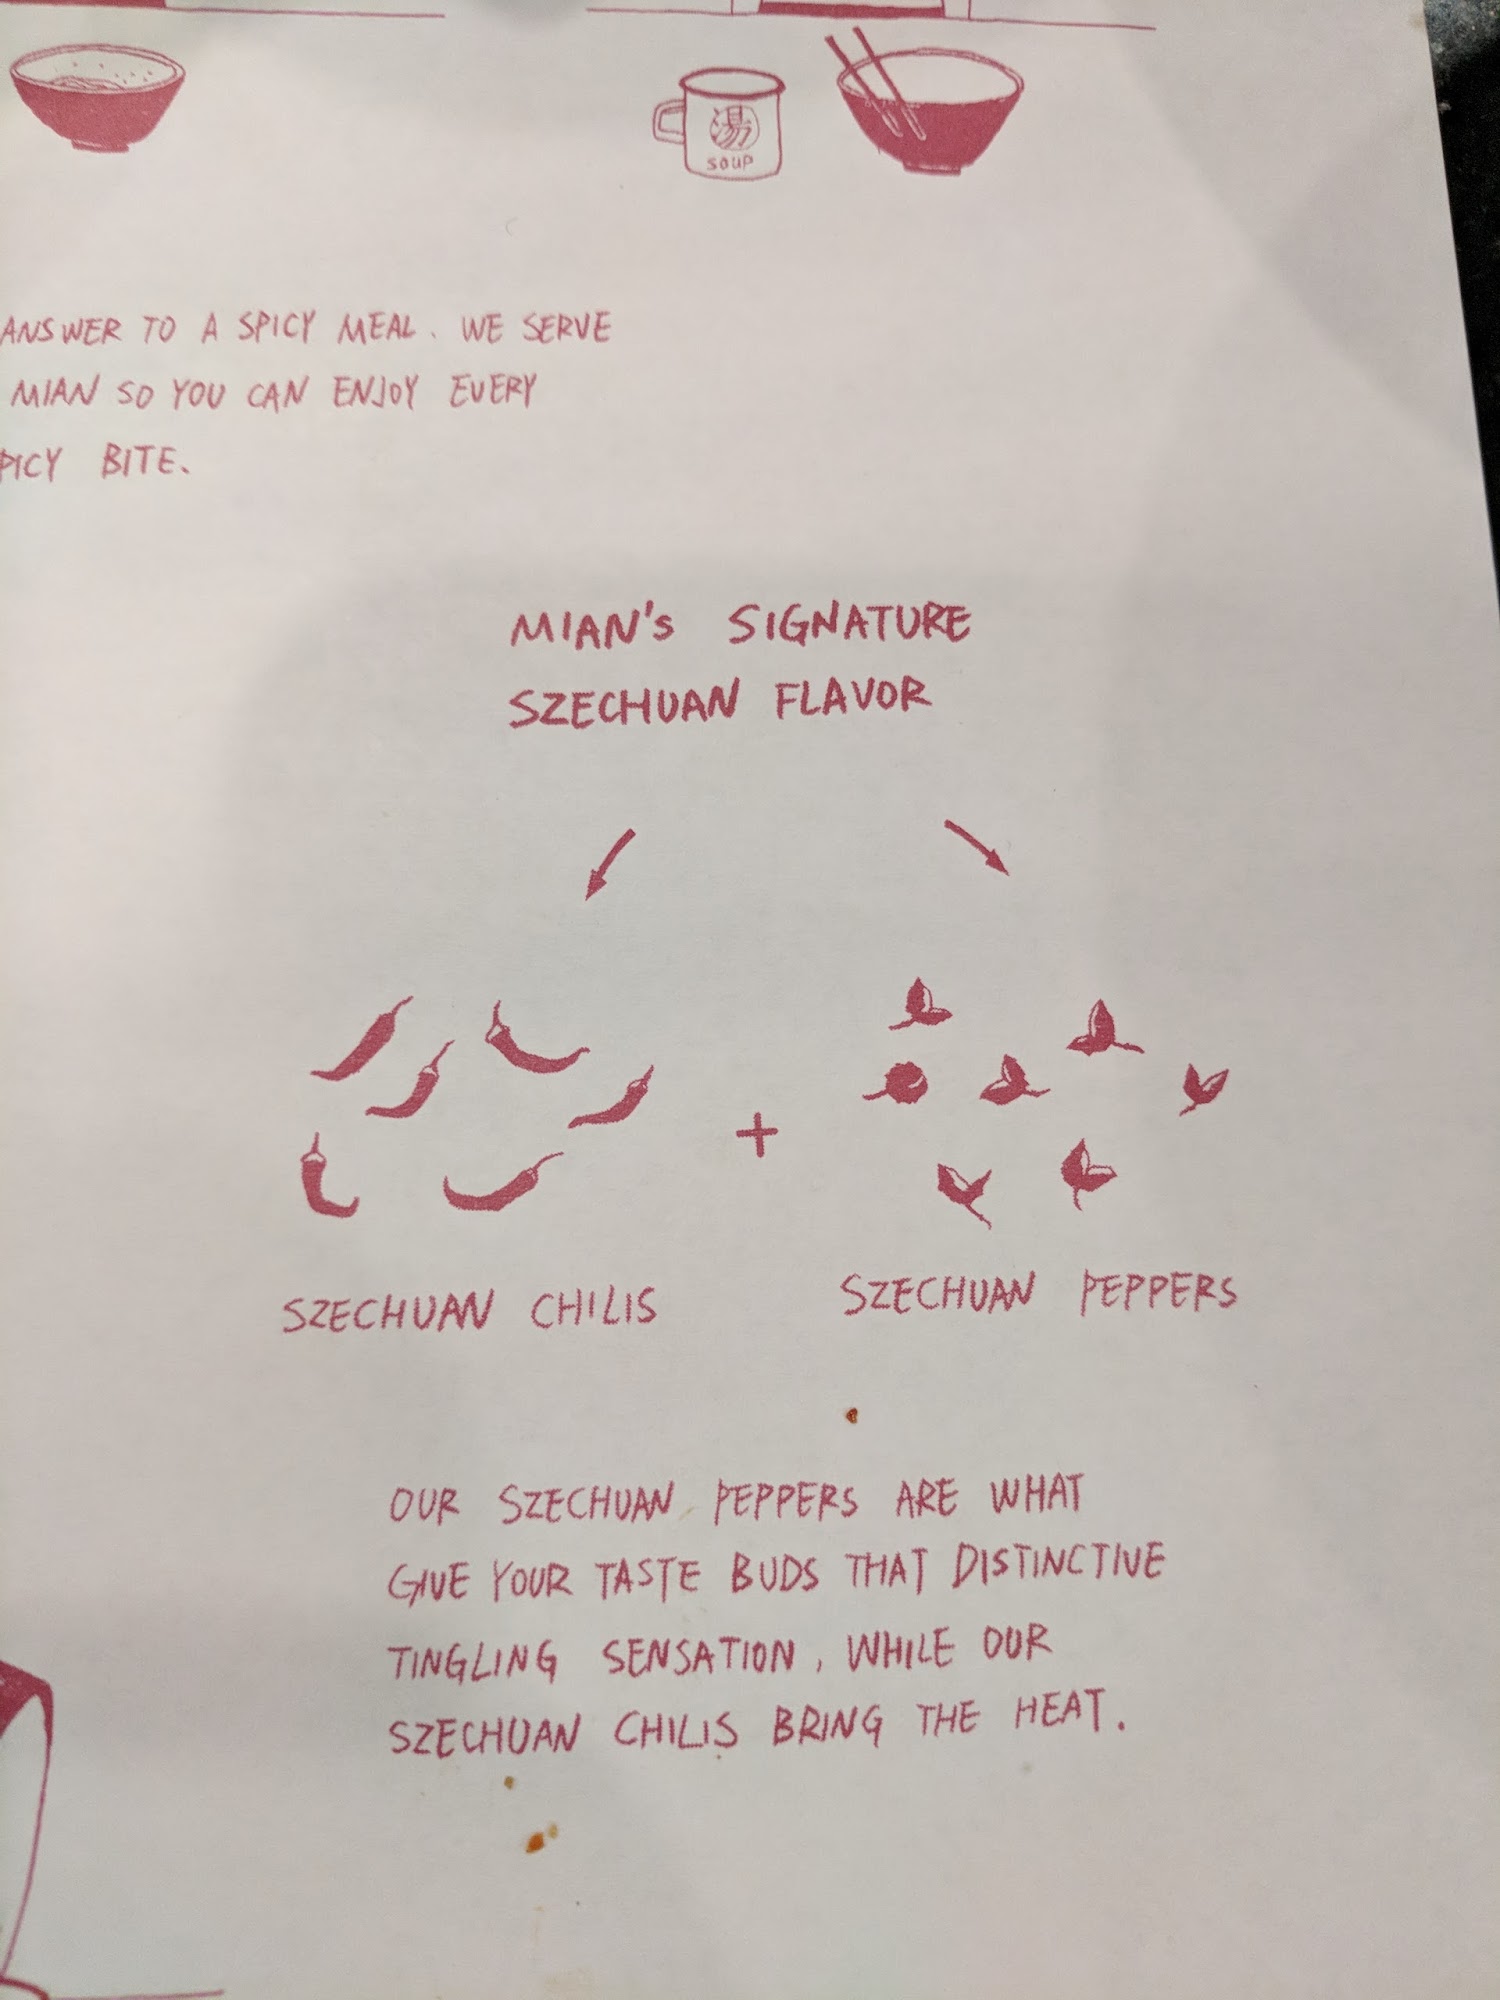 湯
SOUP
ANSWER TO A SPICY MEAL. WE SERVE
MIAN SO YOU CAN ENJOY EVERY
PICY BITE.
MIAN'S SIGNATURE
SZECHUAN FLAVOR
+
SZECHUAN CHILIS
SZECHUAN PEPPERS
OUR SZECHUAN PEPPERS ARE WHAT
GIVE YOUR TASTE BUDS THAT DISTINCTIVE
TINGLING SENSATION, WHILE OUR
SZECHUAN CHILIS BRING THE HEAT.